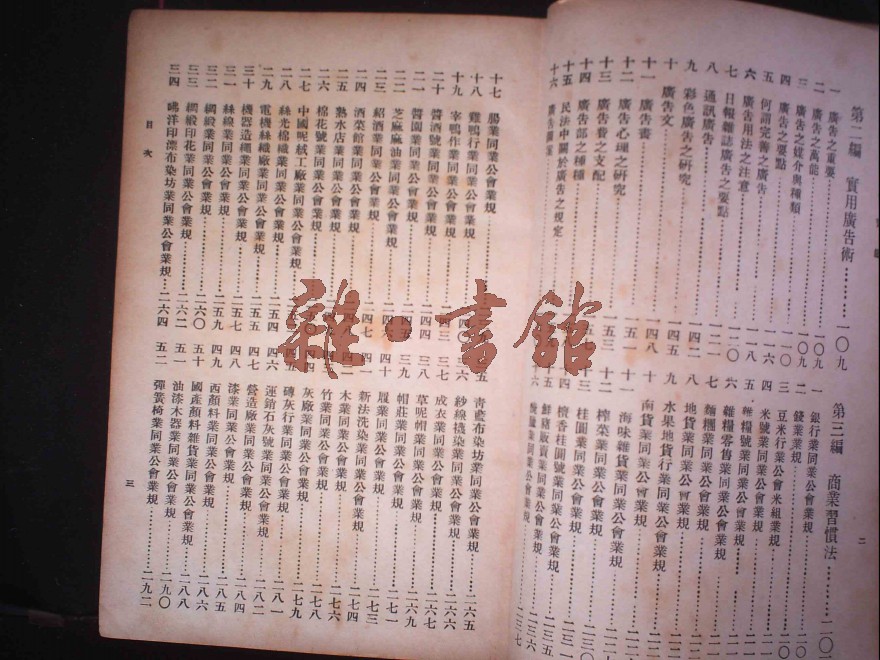 第二編　實用廣告術……一〇九
一　廣告之重要……一〇九
二　廣告之萬能……一〇九
三　廣告之媒介與種類……一一〇
四　廣告之要點
五　何謂完善之廣告……一一六
六　廣告用法之注意……一一八
七　日報雜誌廣告之要點……一二〇
八　通訊廣告
九　彩色廣告之研究……一四二
十　廣告文……一四五
十一　廣告畫……一四八
十二　廣告心理之研究
十三　廣告費之支配
十四　廣告部之種種
十五　民法中關於廣告之規定
十六　廣告
第三編　商業習慣法
一　銀行業同業公會業規
二　錢業業規
三　豆米行業公會米組業規
四　米號業同業公會業規
五　雜糧號業同業公會業規
六　雜糧零售業同業公會業規
七　麵糰業同業公會業規
八　地貨業同業公會業規
九　水果地貨行業同業公會業規
十　南貨業同業公會業規
十一　海味雜貨業同業公會業規
十二　榨菜業同業公會業規
十三　桂圓業同業公會業規
十四　檀香桂圓號業同業公會業規
十五　鮮豬販賣業同業公會業規
業同業公會業規……二三七
二
十七　腸業同業公會業規
十八　雞鴨行業同業公會業規
十九　宰鴨作業同業公會業規
二十　醬酒號業同業公會業規……二四四
二一　醬園業同業公會業規
二二　芝麻麻油業同業公會業規
二三　紹酒業同業公會業規……二四七
二四　酒菜館業同業公會業規
二五　熟水店業同業公會業規
二六　棉花號業同業公會業規
二七　中國呢絨工廠業同業公會業規
二八　絲光棉織業同業公會業規……二五四
二九　電機絲織廠業同業公會業規……二五五
三十　機器造繩業同業公會業規……二五七
三一　絲線業同業公會業規……二五九
三二　綢緞業同業公會業規……二六〇
三三　綢緞印花業同業公會業規……二六二
三四　哔洋印漂布染坊業同業公會業規……二六四
目次
三五　青藍布染坊業同業公會業規……二六五
三六　紗線機染業同業公會業規……二六六
三七　成衣業同業公會業規……二六七
三八　草呢帽業同業公會業規……二六九
三九　帽莊業同業公會業規……二七一
四十　履業同業公會業規……二七三
四一　新法洗染業同業公會業規……二七四
四二　木業同業公會業規……二七六
竹業同業公會業規……二七八
灰廠業同業公會業規……二七九
磚灰行業同業公會業規……二八一
四六　運銷石灰號業同業公會業規……二八二
四七　營造廠業同業公會業規……二八四
四八　漆業同業公會業規……二八五
四九　西顏料業同業公會業規……二八六
五十　國產顏料雜貨業同業公會業規……二八八
五一　油漆木器業同業公會業規……二九〇
五二　彈簧椅業同業公會業規……二九二
三
雜·書館